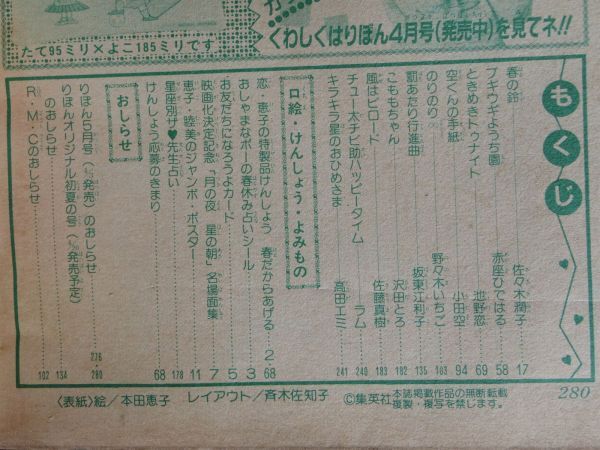 くわしくはりぼん4月号(発売中)を見てネ!!
たて95ミリ×よこ185ミリです
もくじ
春の鈴 佐々木潤子 17
ブギウギようち園 赤座ひではる 58
ときめきトゥナイト 池野恋 69
空くんの手紙 小田空 94
のりのりの 野々木いちご 103
罰あたり行進曲 坂東江利子 135
こももちゃん 沢田とろ 182
風はビロード 佐藤真樹 183
チュー太チビ助ハッピータイム ラム 240
キラキラ星のおひめさま 高田エミ 241
口絵・けんしょう・よみもの
恋・恵子の特製品けんしょう 春だからあげる 2 68
おしゃまなポーの春休み占いシール 3
お友だちになろうよカード 5
映画化決定記念「月の夜 星の朝」名場面集 7
恵子・睦美のジャンボ・ポスター 11
星座別ザ♥先生占い 178
けんしょう応募のきまり 68
おしらせ
りぼん5月号(発売)のおしらせ 276・280
りぼんオリジナル初夏の号(発売予定)
のおしらせ 134
R・M・Cのおしらせ 102
280
〈表紙〉絵/本田恵子 レイアウト/斉木佐知子 ©集英社 本誌掲載作品の無断転載
複製・複写を禁じます。